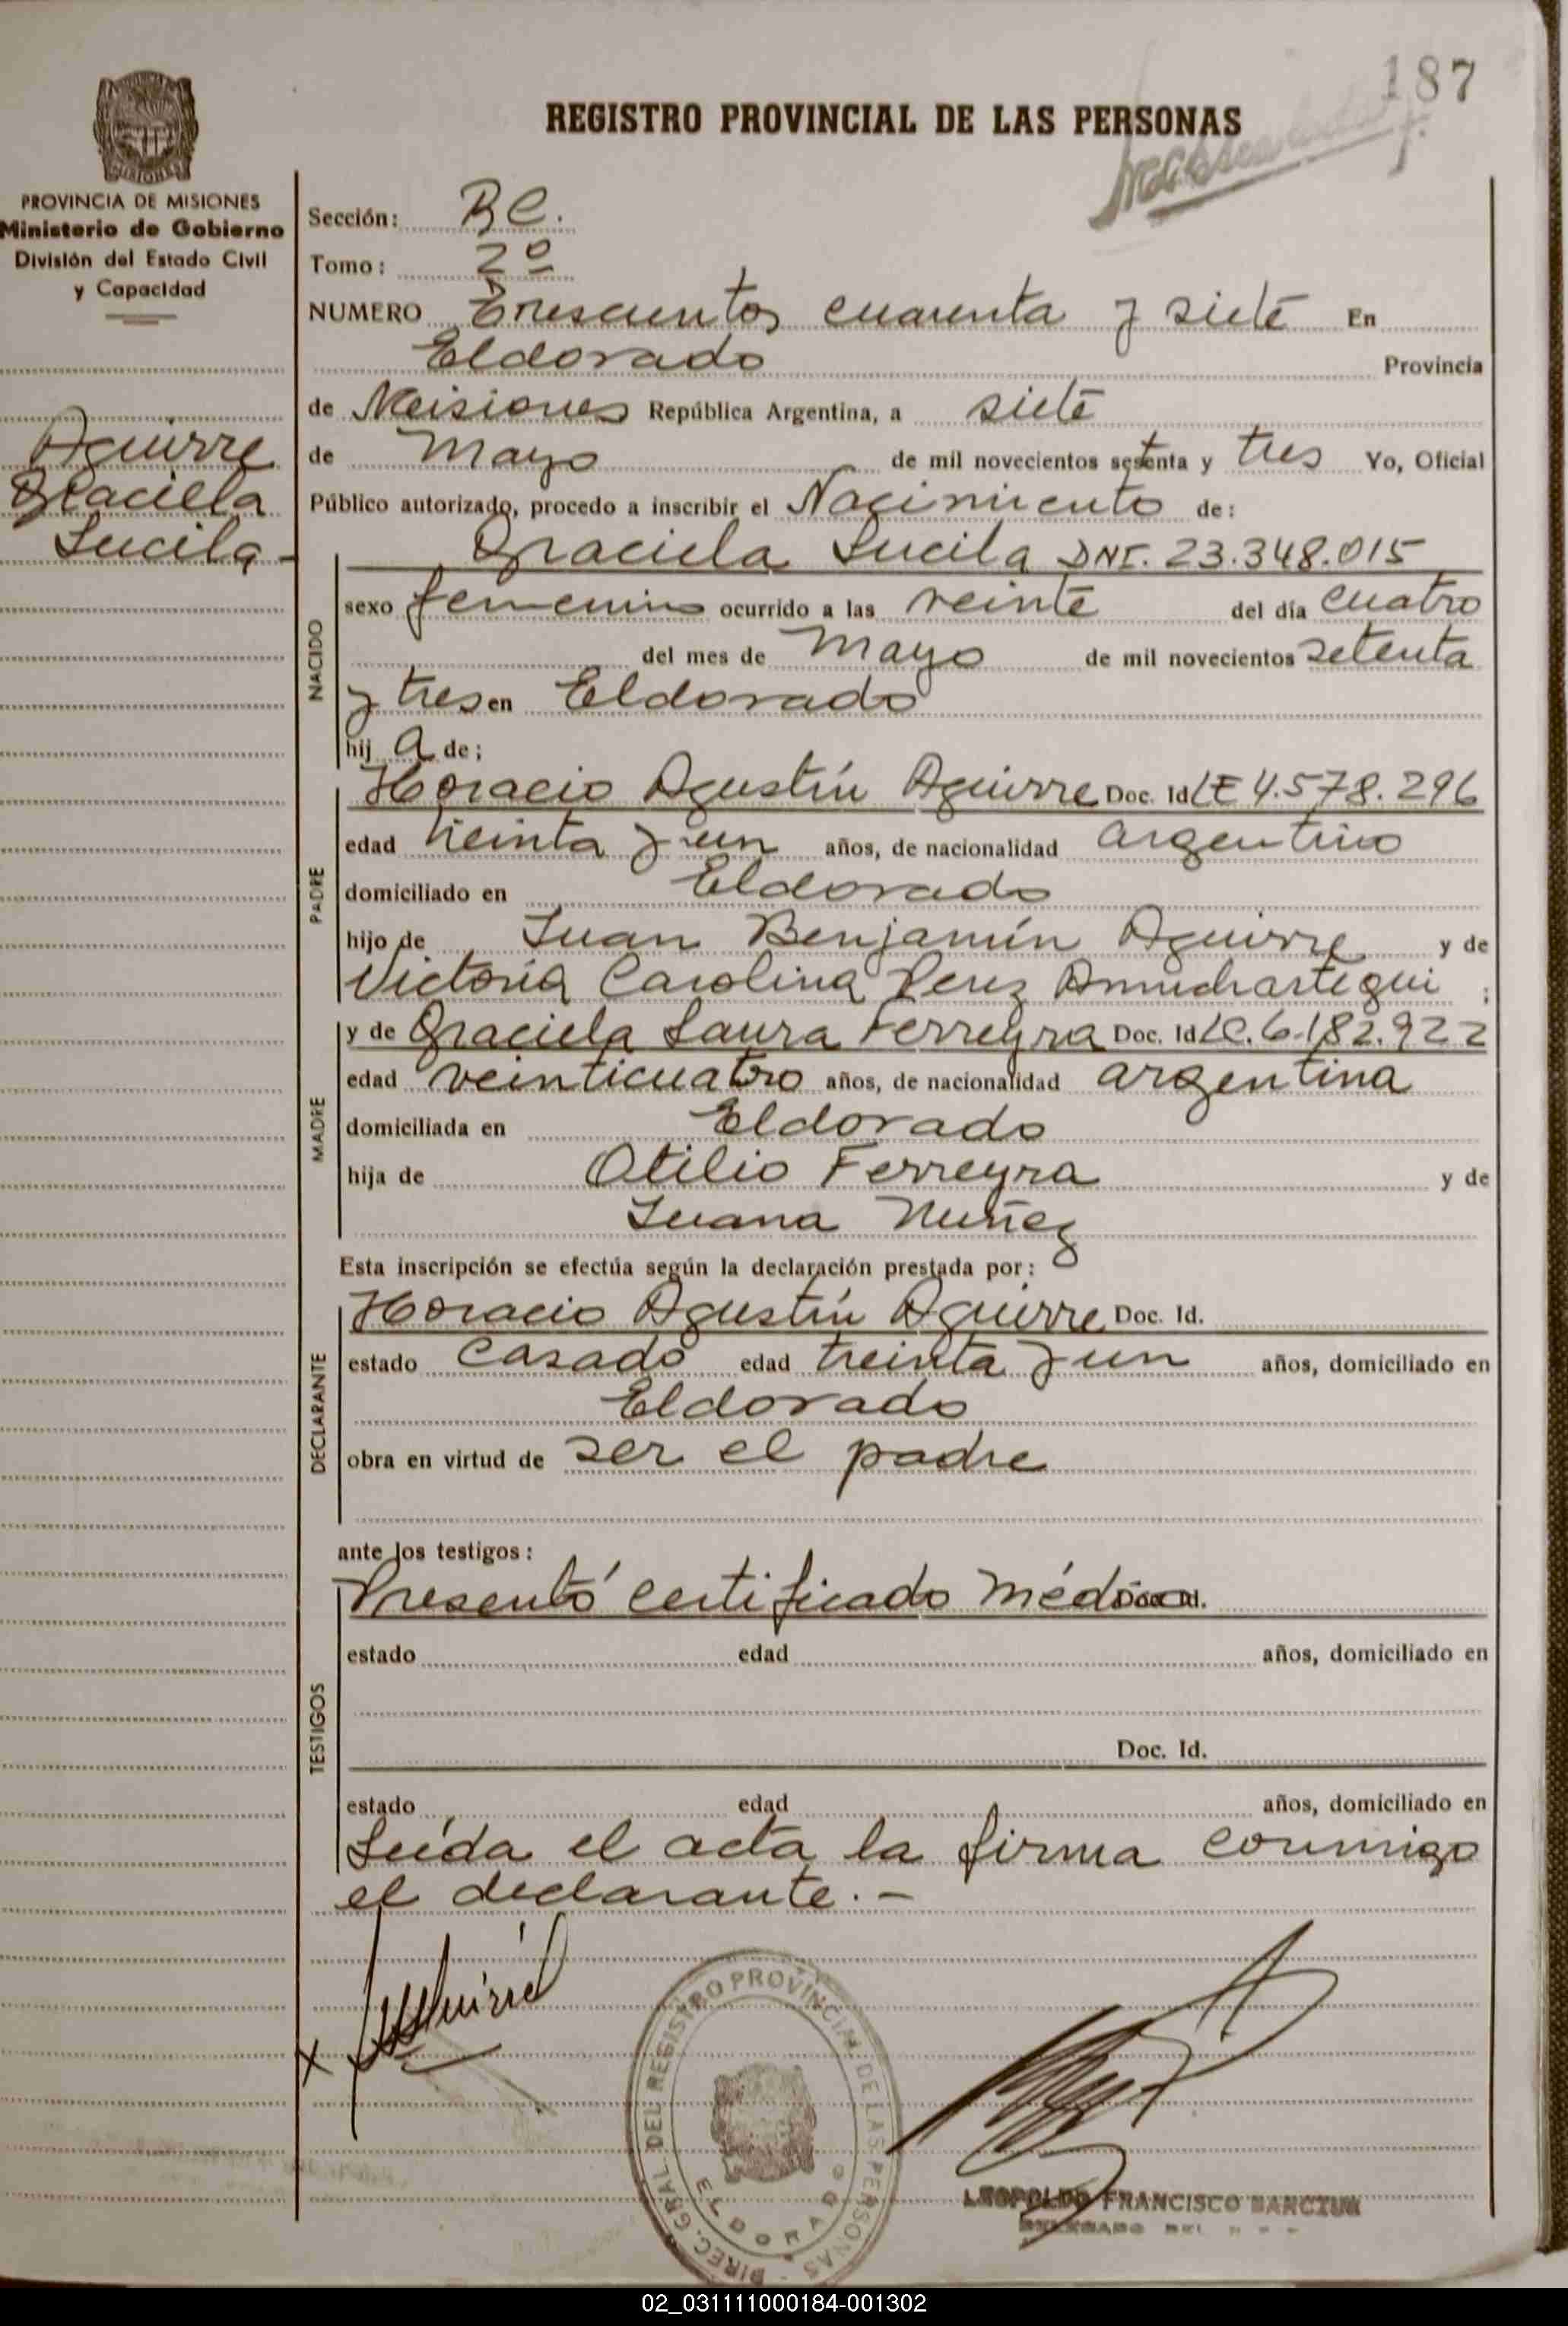 187
REGISTRO PROVINCIAL DE LAS PERSONAS
PROVINCIA DE MISIONES
Ministerio de Gobierno
División del Estado Civil
y Capacidad
Aguirre
Graciela
Lucila -
Sección:
Tomo: 2º
NUMERO Trescientos cuarenta y siete En
Eldorado Provincia
de Misiones República Argentina, a siete
de Mayo de mil novecientos setenta y tres Yo, Oficial
Público autorizado, procedo a inscribir el Nacimiento de:
NACIDO
Graciela Lucila DNI. 23.348.015
sexo femenino ocurrido a las veinte del día cuatro
del mes de Mayo de mil novecientos setenta
y tres en Eldorado
hij a de;
PADRE
Horacio Agustín Aguirre Doc. Id LE 4.578.296
edad treinta y un años, de nacionalidad argentino
domiciliado en Eldorado
hijo de Juan Benjamín Aguirre y de
Victoria Carolina Perez ;
MADRE
y de Graciela Laura Ferreyra Doc. Id LC. 6.182.922
edad veinticuatro años, de nacionalidad argentina
domiciliada en Eldorado
hija de Otilio Ferreyra y de
Juana Nuñez
Esta inscripción se efectúa según la declaración prestada por:
DECLARANTE
Horacio Agustín Aguirre Doc. Id.
estado casado edad treinta y un años, domiciliado en
Eldorado
obra en virtud de ser el padre
ante los testigos:
TESTIGOS
Presentó certificado médico.
estado edad años, domiciliado en
Doc. Id.
estado edad años, domiciliado en
Leída el acta la firma conmigo
el declarante. -
X
DIREC. GRAL DEL REGISTRO PROVINCIAL DE LAS PERSONAS -
ELDORADO
LEOPOLDO FRANCISCO
02_031111000184-001302